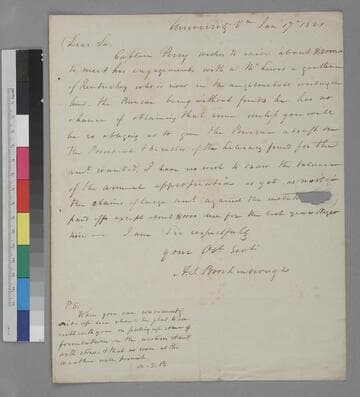 University Va Jan 17th 1821
Dear Sir,
Captain Perry wishes to raise about
to meet his engagements with a Mr Lewis a gentleman
of Kentucky who is now in the neighborhood waiting on
him. The Bursar being without funds he has no
chance of obtaining that sum unless you will
be so obliging as to give the Bursar a draft on
the President & Directors of the Literary fund for the
amt wanted, I have no wish to draw the balance
of the annual appropriation as yet as most of
the claims of large amt against the
paid off except about for the last years Negro
hire — I am Sir respectfully
your Obt Servt
A.S. Brockenbrough
P.S.
When you can conveniently
ride up here should be glad to con-
sult with you in putting up some of
foundations in the western street
with stone & that as soon as the
weather will permit
A.S.B.